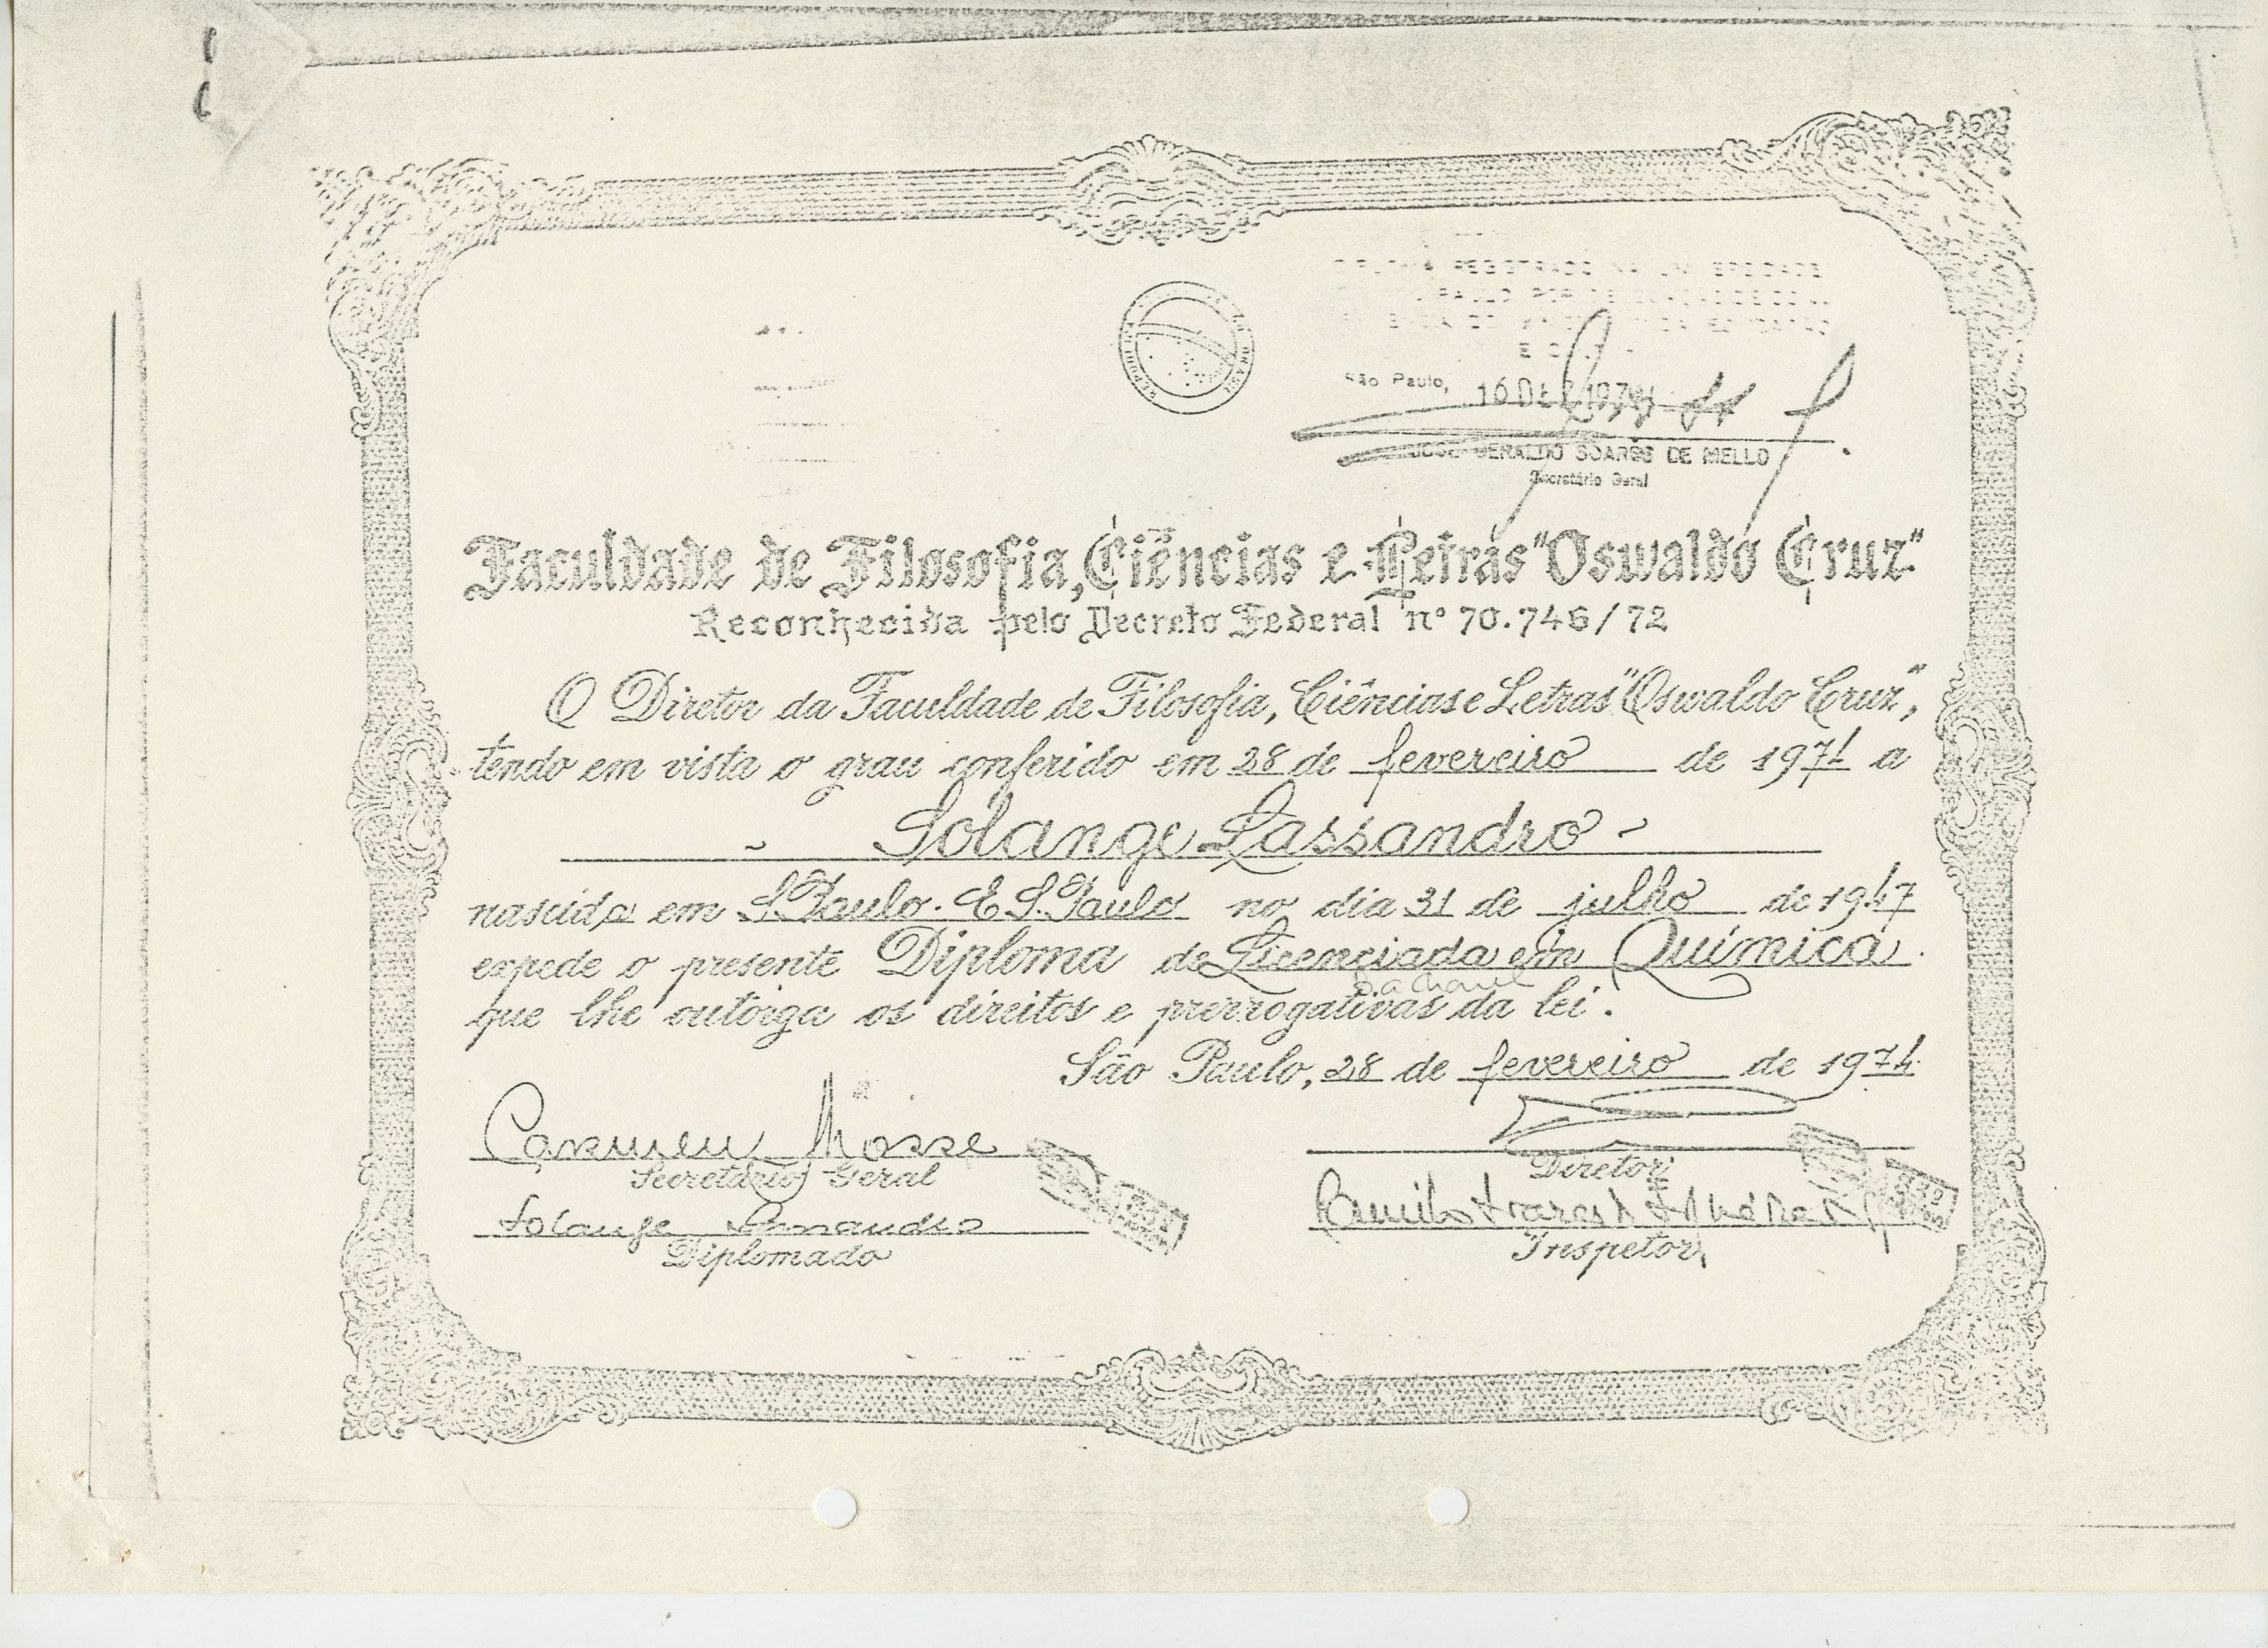 REPÚBLICA DO BRASIL
DIPLOMA REGISTRADO NA UNIVERSIDADE
PAULO POR
EDUCAÇÃO
E
São Paulo, 16 DEZ 1974
JOSÉ GERALDO SOARES DE MELLO
Secretário Geral
Faculdade de Filosofia, Ciências e Letras "Oswaldo Cruz"
Reconhecida pelo Decreto Federal nº 70.746/72
O Diretor da Faculdade de Filosofia, Ciências e Letras "Oswaldo Cruz",
tendo em vista o grau conferido em 28 de fevereiro de 1974 a
~ Solange Lassandro ~
nascida em S. Paulo. E S. Paulo no dia 31 de julho de 1947
expede o presente Diploma de Licenciada em Química.
bacharel
que lhe outorga os direitos e prerrogativas da lei.
São Paulo, 28 de fevereiro de 1974
Carmen
Secretário Geral
Diretor
Solange Lassandro
Diplomado
Inspetor